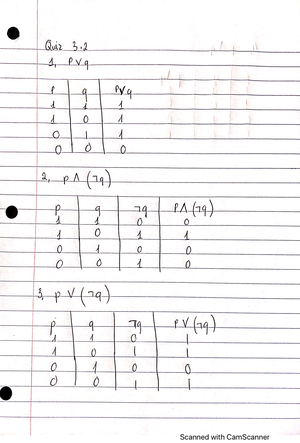 Quiz 3.2
1, p∨q
p q p∨q
1 1 1
1 0 1
0 1 1
0 0 0
2, p∧(¬q)
p q ¬q p∧(¬q)
1 1 0 0
1 0 1 1
0 1 0 0
0 0 1 0
3, p∨(¬q)
p q ¬q p∨(¬q)
1 1 0 1
1 0 1 1
0 1 0 0
0 0 1 1
Scanned with CamScanner